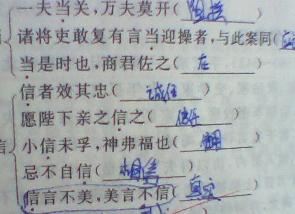 一夫当关，万夫莫开（阻挡）
诸将吏敢复有言当迎操者，与此案同（
当是时也，商君佐之（在）
信者效其忠（诚信）
愿陛下亲之信之（信任）
信 小信未孚，神弗福也（
忌不自信（相信）
信言不美，美言不信（真实）